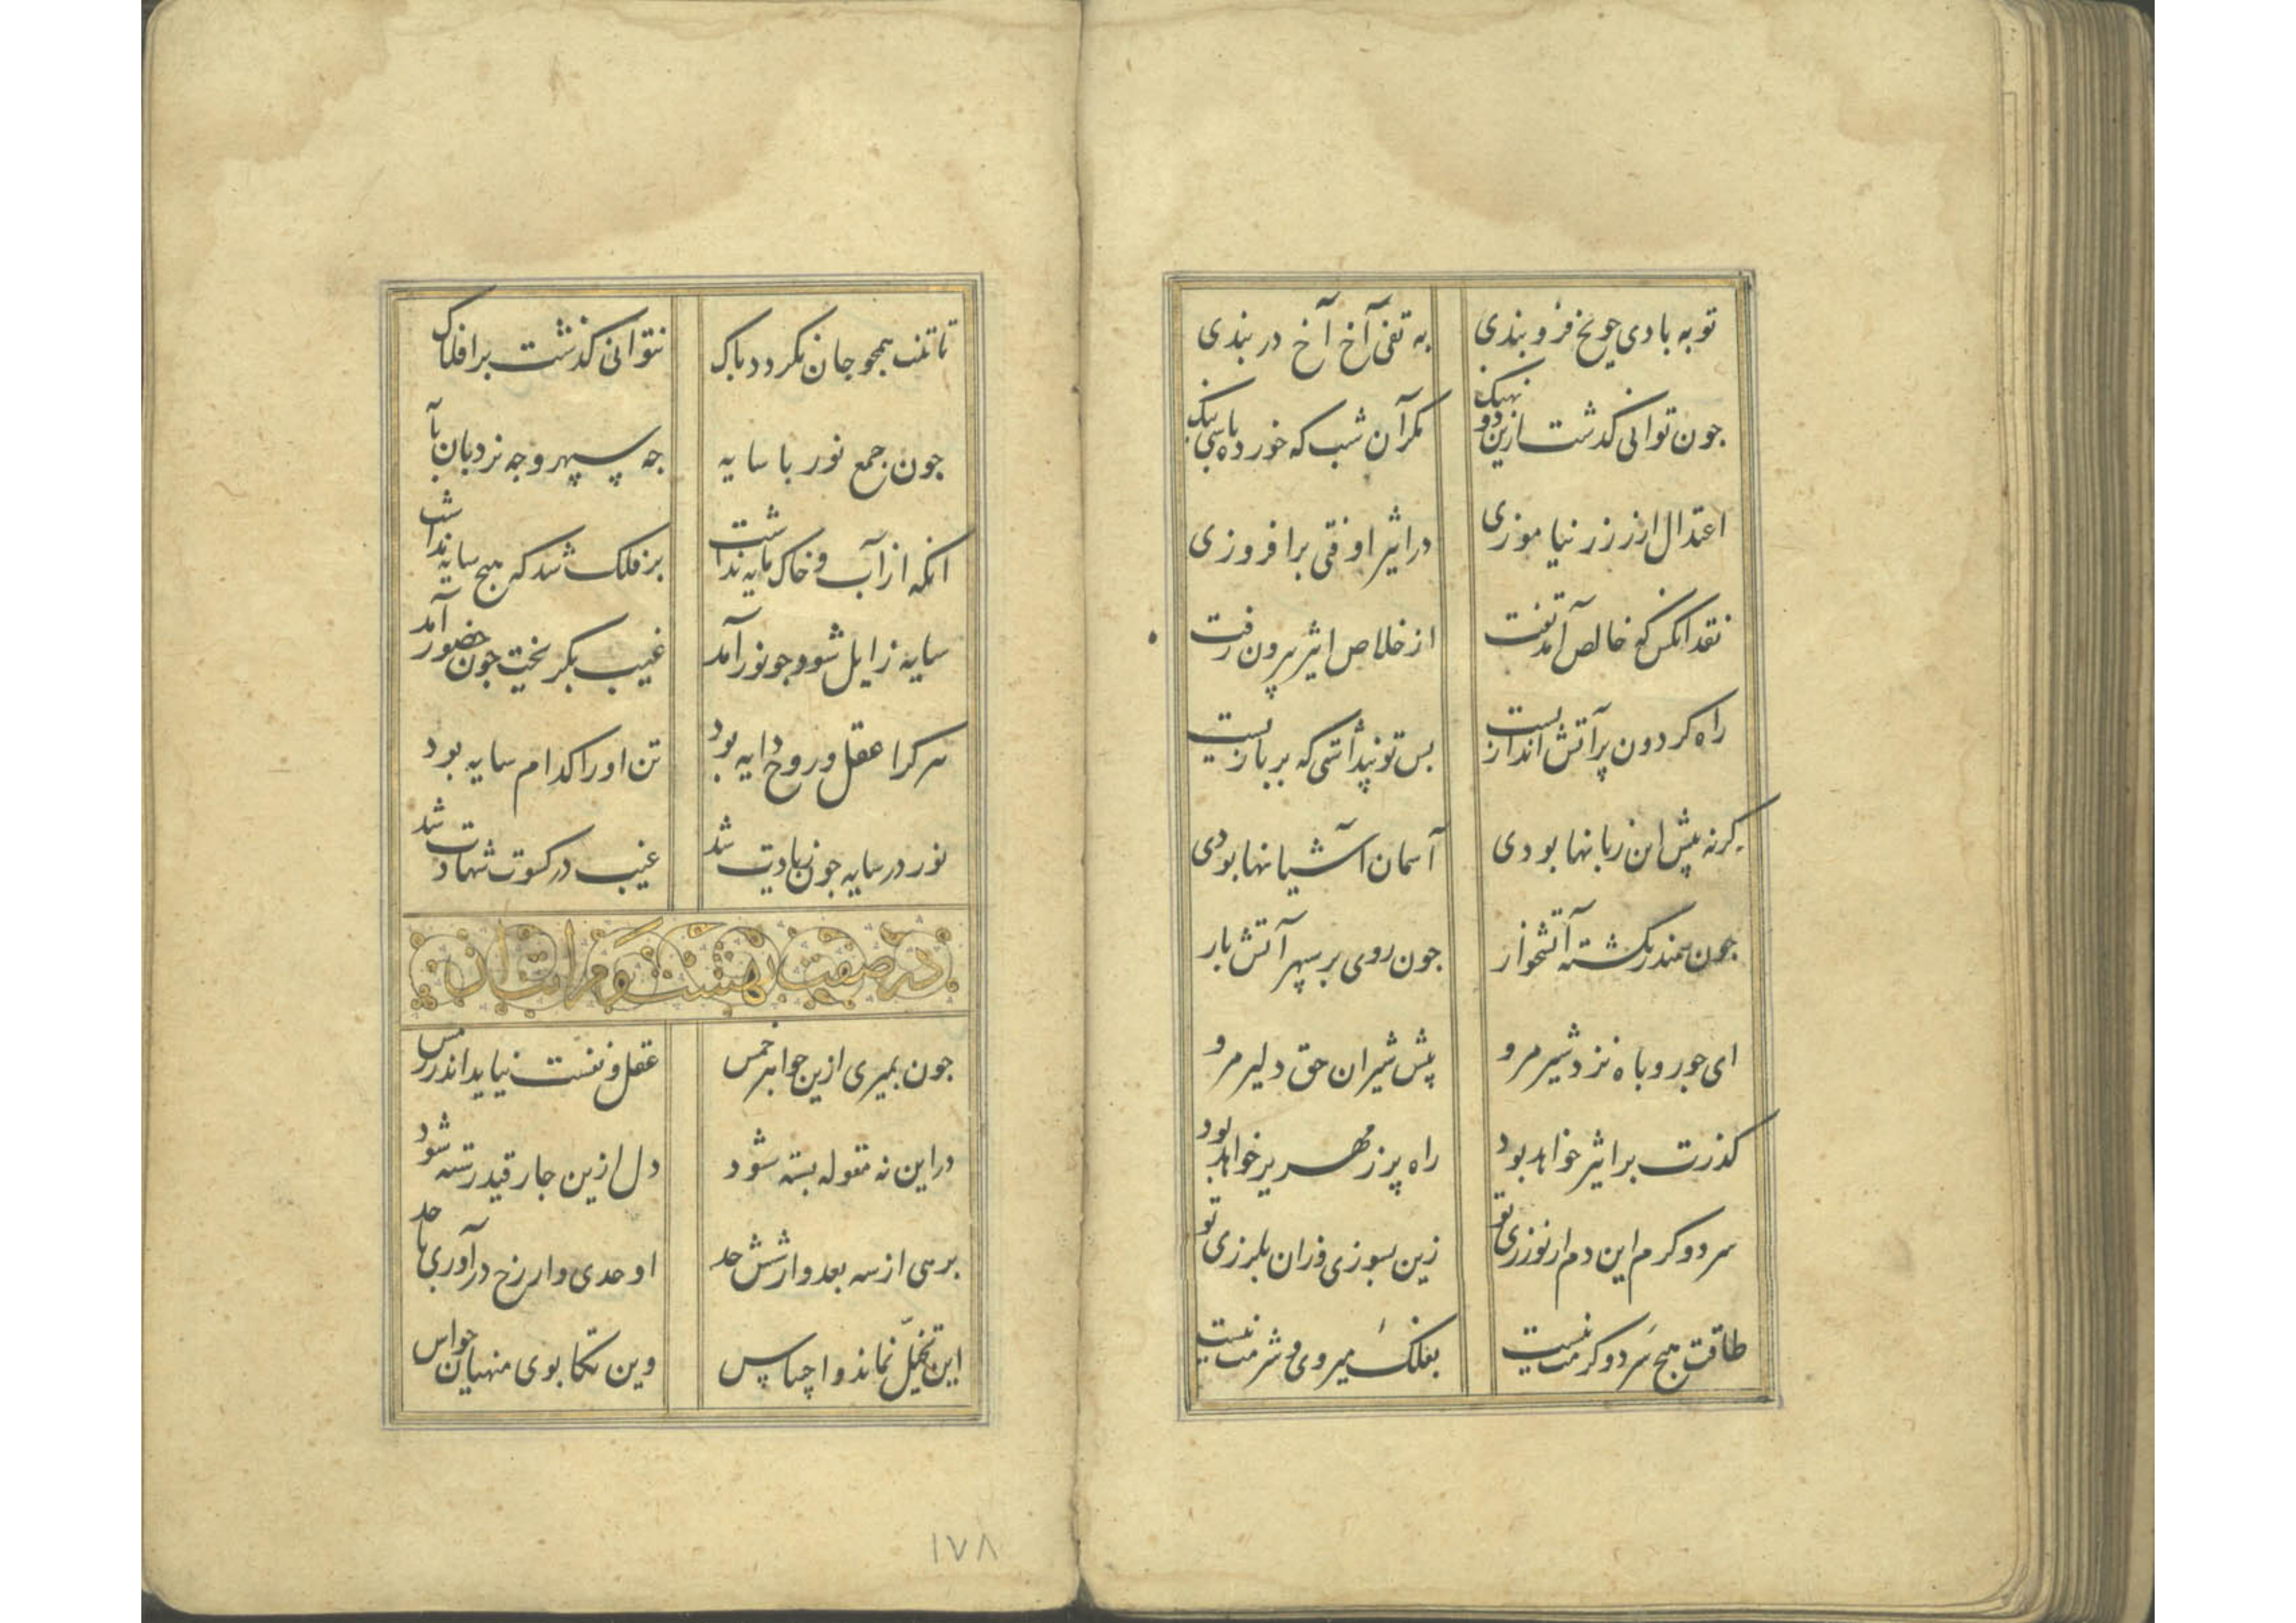 توبه بادی چو یخ فرو بندی به تفی آخ آخ در بندی
جون توانی کذشت ازین دو نهنک مکر آن شب که خورده باشی بنک
اعتدال ار ز زر نیاموزی در اثیر اوفتی برافروزی
نقد انکس که خالص آمد تفت از خلاص اثیر بیرون رفت
راه کردون پر آتش اندازیست بس تو پنداشتی که بر بازیست
کرنه پیش این زبانها بودی آسمان آشیانها بودی
جون سمندر نکشته آتشخوار جون روی بر سپهر آتش بار
ای جو روباه نزد شیر مرو پیش شیران حق دلیر مرو
کذرت بر اثیر خواهد بود راه پر زمهریر خواهد بود
سرد و کرم این دم ار نورزی تو زین بسوزی و زان بلرزی تو
طاقت هیج سرد و کرمت نیست بفلک میروی و شرمت نیست
تا تنت همجو جان نکردد باک نتوانی کذشت بر افلاک
جون جمع نور با سایه جه سپهر و جه نردبان پایه
انکه از آب و خاک مایه نداشت بر فلک شد که هیج سایه نداشت
سایه زایل شود جو نور آمد غیب بکریخت جون حضور آمد
هر کرا عقل و روح دایه بود تن او را کدام سایه بود
نور در سایه جون زیادت شد غیب در کسوت شهادت شد
در صفت بهشت و مراتب ان
جون بمیری ازین جواهر خمس عقل و نفست نیاید اندر رمس
در این نه مقوله بسته شود دل ازین جار قید رسته شود
برهی از سه بعد و از شش حد اوحدی وار رخ در آوری با حد
این تخیل نماند و احساس وین تکابوی منهیان حواس
١٧٨